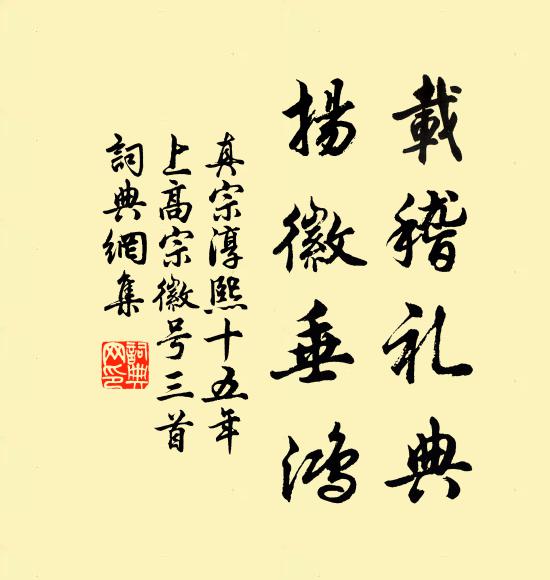 載稽礼典
揚徽垂鴻
真宗淳熙十五年
上高宗徽号三首
詞典網集
詞典網印